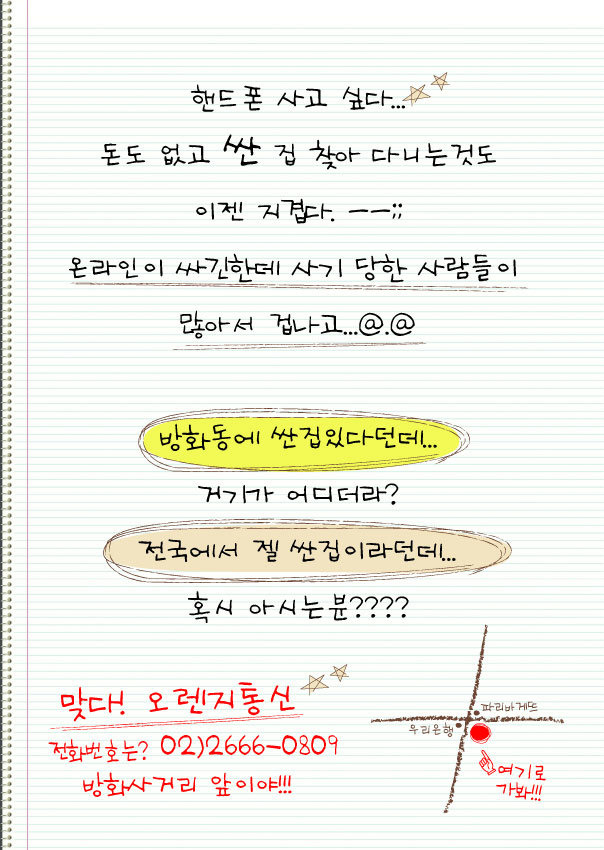 핸드폰 사고 싶다...
돈도 없고 싼 집 찾아 다니는것도
이젠 지겹다. ㅡㅡ;;
온라인이 싸긴한데 사기 당한 사람들이
많아서 겁나고...@.@
방화동에 싼집있다던데...
거기가 어디더라?
전국에서 젤 싼집이라던데...
혹시 아시는분????
맞다! 오렌지통신
전화번호는? 02)2666-0809
방화사거리 앞이야!!!
파리바게뜨
우리은행
여기로
가봐!!!